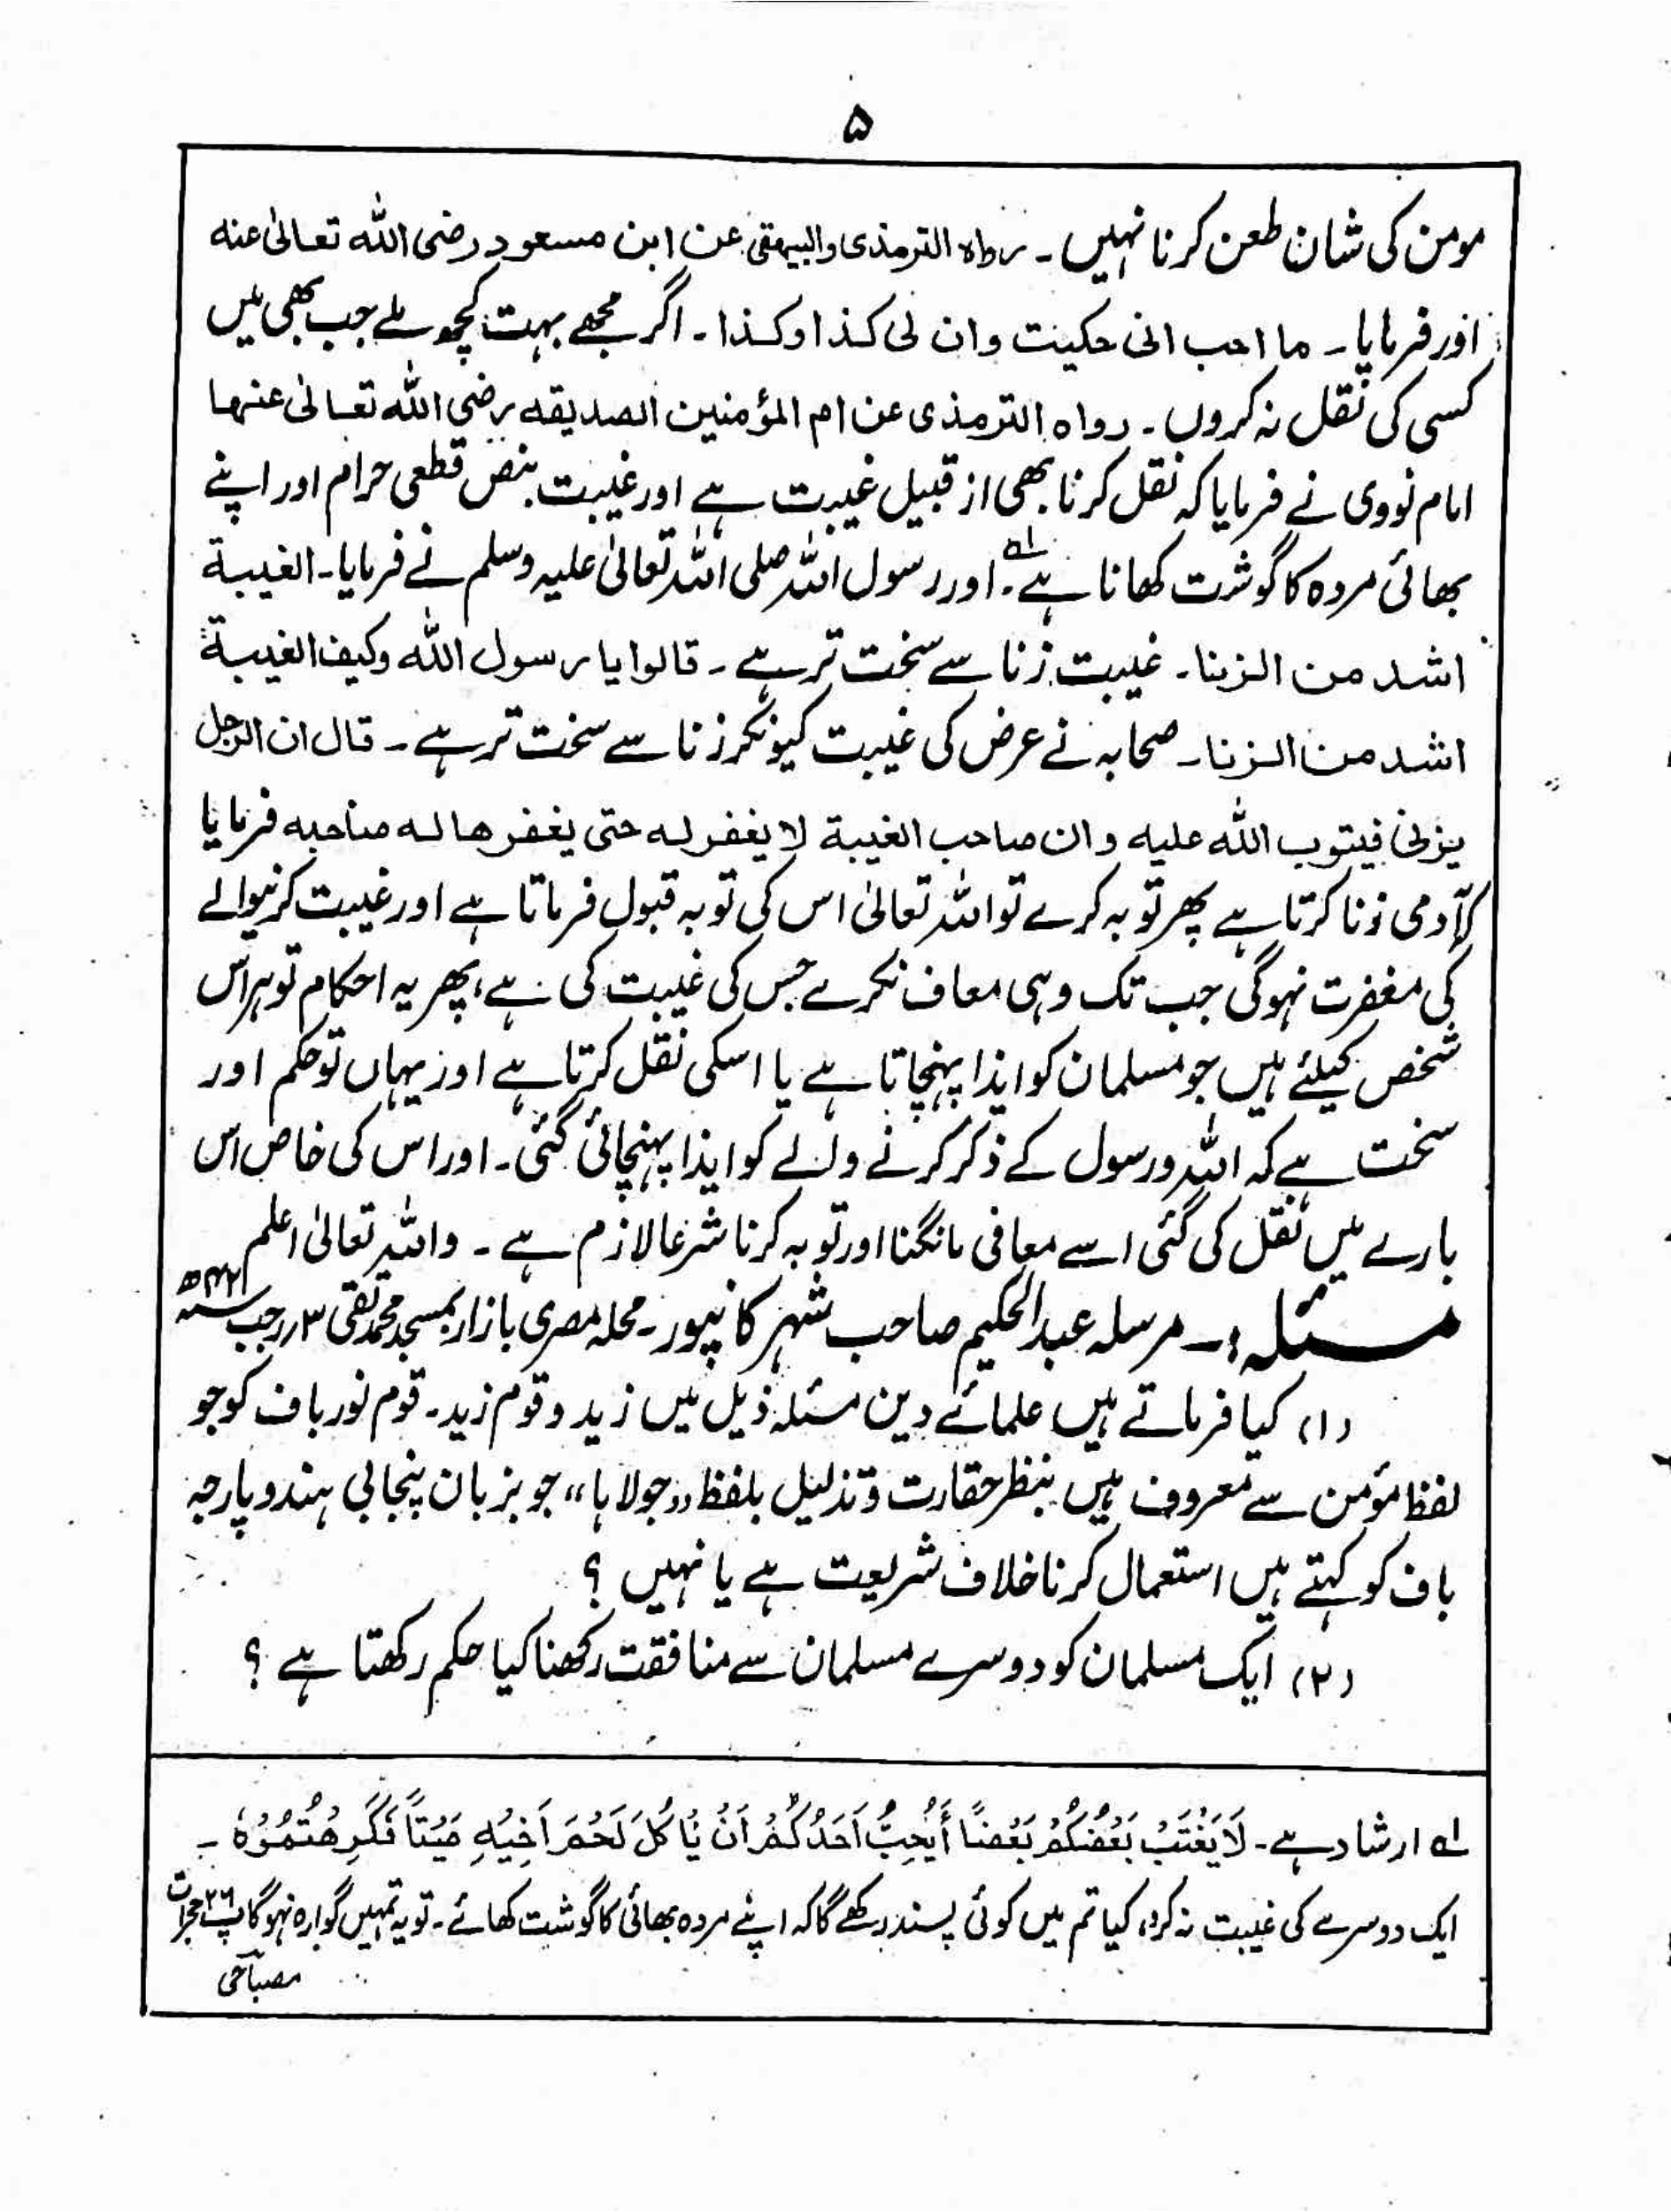 ۵
مومن کی شان طعن کرنا نہیں ۔ رواہ الترمذی والبیہقی عن ابن مسعود رضی اللہ تعالیٰ عنہ
اور فرمایا ۔ ما احب انی حکیت وان لی کذا وکذا ۔ اگر مجھے بہت کچھ ملے جب بھی میں
کسی کی نقل نہ کروں ۔ رواہ الترمذی عن ام المؤمنین الصدیقہ رضی اللہ تعالیٰ عنہا
امام نووی نے فرمایا کہ نقل کرنا بھی از قبیل غیبت ہے اور غیبت بنص قطعی حرام اور اپنے
بھائی مردہ کا گوشت کھانا ہے ۔ لہ اور رسول اللہ صلی اللہ تعالیٰ علیہ وسلم نے فرمایا ۔ الغیبۃ
اشد من الزنا ۔ غیبت زنا سے سخت تر ہے ۔ قالوا یا رسول اللہ وکیف الغیبۃ
اشد من الزنا ۔ صحابہ نے عرض کی غیبت کیونکر زنا سے سخت تر ہے ۔ قال ان الرجل
یزنی فیتوب اللہ علیہ وان صاحب الغیبۃ لا یغفر لہ حتی یغفرھا لہ صاحبہ فرمایا
کہ آدمی زنا کرتا ہے پھر توبہ کرے تو اللہ تعالیٰ اس کی توبہ قبول فرماتا ہے اور غیبت کرنیوالے
کی مغفرت نہوگی جب تک وہی معاف نکرے جس کی غیبت کی ہے ، پھر یہ احکام تو ہر اس
شخص کیلئے ہیں جو مسلمان کو ایذا پہنچاتا ہے یا اسکی نقل کرتا ہے اور یہاں تو حکم اور
سخت ہے کہ اللہ ورسول کے ذکر کرنے والے کو ایذا پہنچائی گئی ۔ اور اس کی خاص اس
بارے میں نقل کی گئی اسے معافی مانگنا اور توبہ کرنا شرعا لازم ہے ۔ واللہ تعالیٰ اعلم
مسئلہ :۔ مرسلہ عبدالحکیم صاحب شہر کانپور ۔ محلہ مصری بازار بمسجد محمد تقی ۳ رجب سنہ ۴۲ھ
(۱) کیا فرماتے ہیں علمائے دین مسئلہ ذیل میں زید و قوم زید ۔ قوم نور باف کو جو
لفظ مؤمن سے معروف ہیں بنظر حقارت و تذلیل بلفظ ،،جولاہا،، جو بزبان پنجابی ہندو پارچہ
باف کو کہتے ہیں استعمال کرنا خلاف شریعت ہے یا نہیں ؟
(۲) ایک مسلمان کو دوسرے مسلمان سے منافقت رکھنا کیا حکم رکھتا ہے ؟
لہ ارشاد ہے ۔ لَا یَغْتَبْ بَعْضُکُمْ بَعْضًا أَیُحِبُّ اَحَدُکُمْ اَنْ یَّاْکُلَ لَحْمَ اَخِیْہِ مَیْتًا فَکَرِھْتُمُوْہُ ۔
ایک دوسرے کی غیبت نہ کرو ، کیا تم میں کوئی پسند رکھے گا کہ اپنے مردہ بھائی کا گوشت کھائے ۔ تو یہ تمہیں گوارہ نہوگا پ ۲۶ حجرات
مصباحی